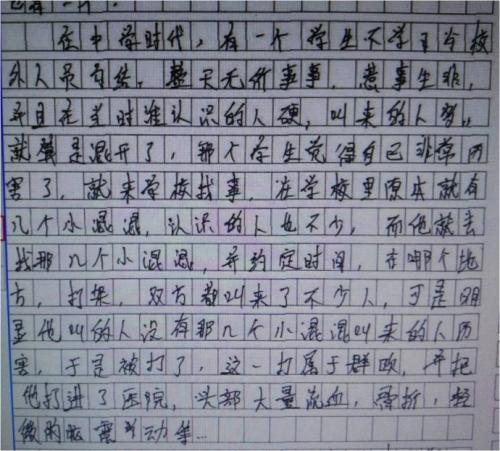 在中学时代，有一个学生不学习与校
外人员勾结，整天无所事事，惹事生非，
并且在当时谁认识的人硬，叫来的人多，
就算是混开了，那个学生觉得自己非常厉
害了，就来学校找事，在学校里原本就有
几个小混混，认识的人也不少，而他就去
找那几个小混混，并约定时间，在哪个地
方，打架，双方都叫来了不少人，可是明
显他叫的人没有那几个小混混叫来的人厉
害，于是被打了，这一打属于群殴，并把
他打进了医院，头部大量流血，骨折，轻
微的脑震动等…